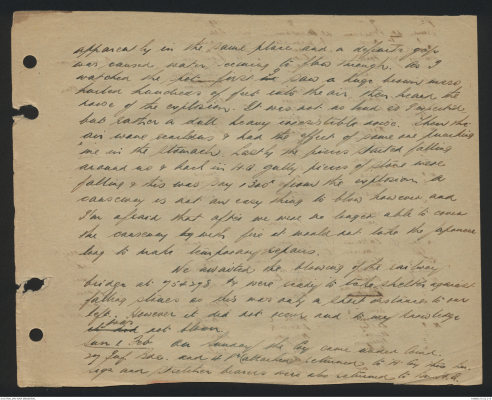 apparently in the same place and a definite gap
was caused water seeming to flow through. As I
watched the spot first I saw a huge brown mass
hurled hundreds of feet into the air then heard the
noise of the explosion. It was not as loud as I expected
but rather a dull heavy irresistible noise. Then the
air wave reached us & had the effect of some one punching
me in the stomach. Lastly the pieces started falling
around us & back in H.Q. gully pieces of stone were
falling & this was say 1300x from the explosion. A
causeway is not an easy thing to blow however and
I'm afraid that after we were no longer able to cover
the causeway by with fire it would not take the Japanese
long to make temporary repairs.
We awaited the blowing of the railway
bridge at & were ready to take shelter against
falling stones as this was only a short distance to our
left. However it did not occur and to my knowledge
it was not blown.
Sun 1 Feb On Sunday the Coy came under comd
and 1st returned to H.Q. this
and stretcher bearers were also returned to